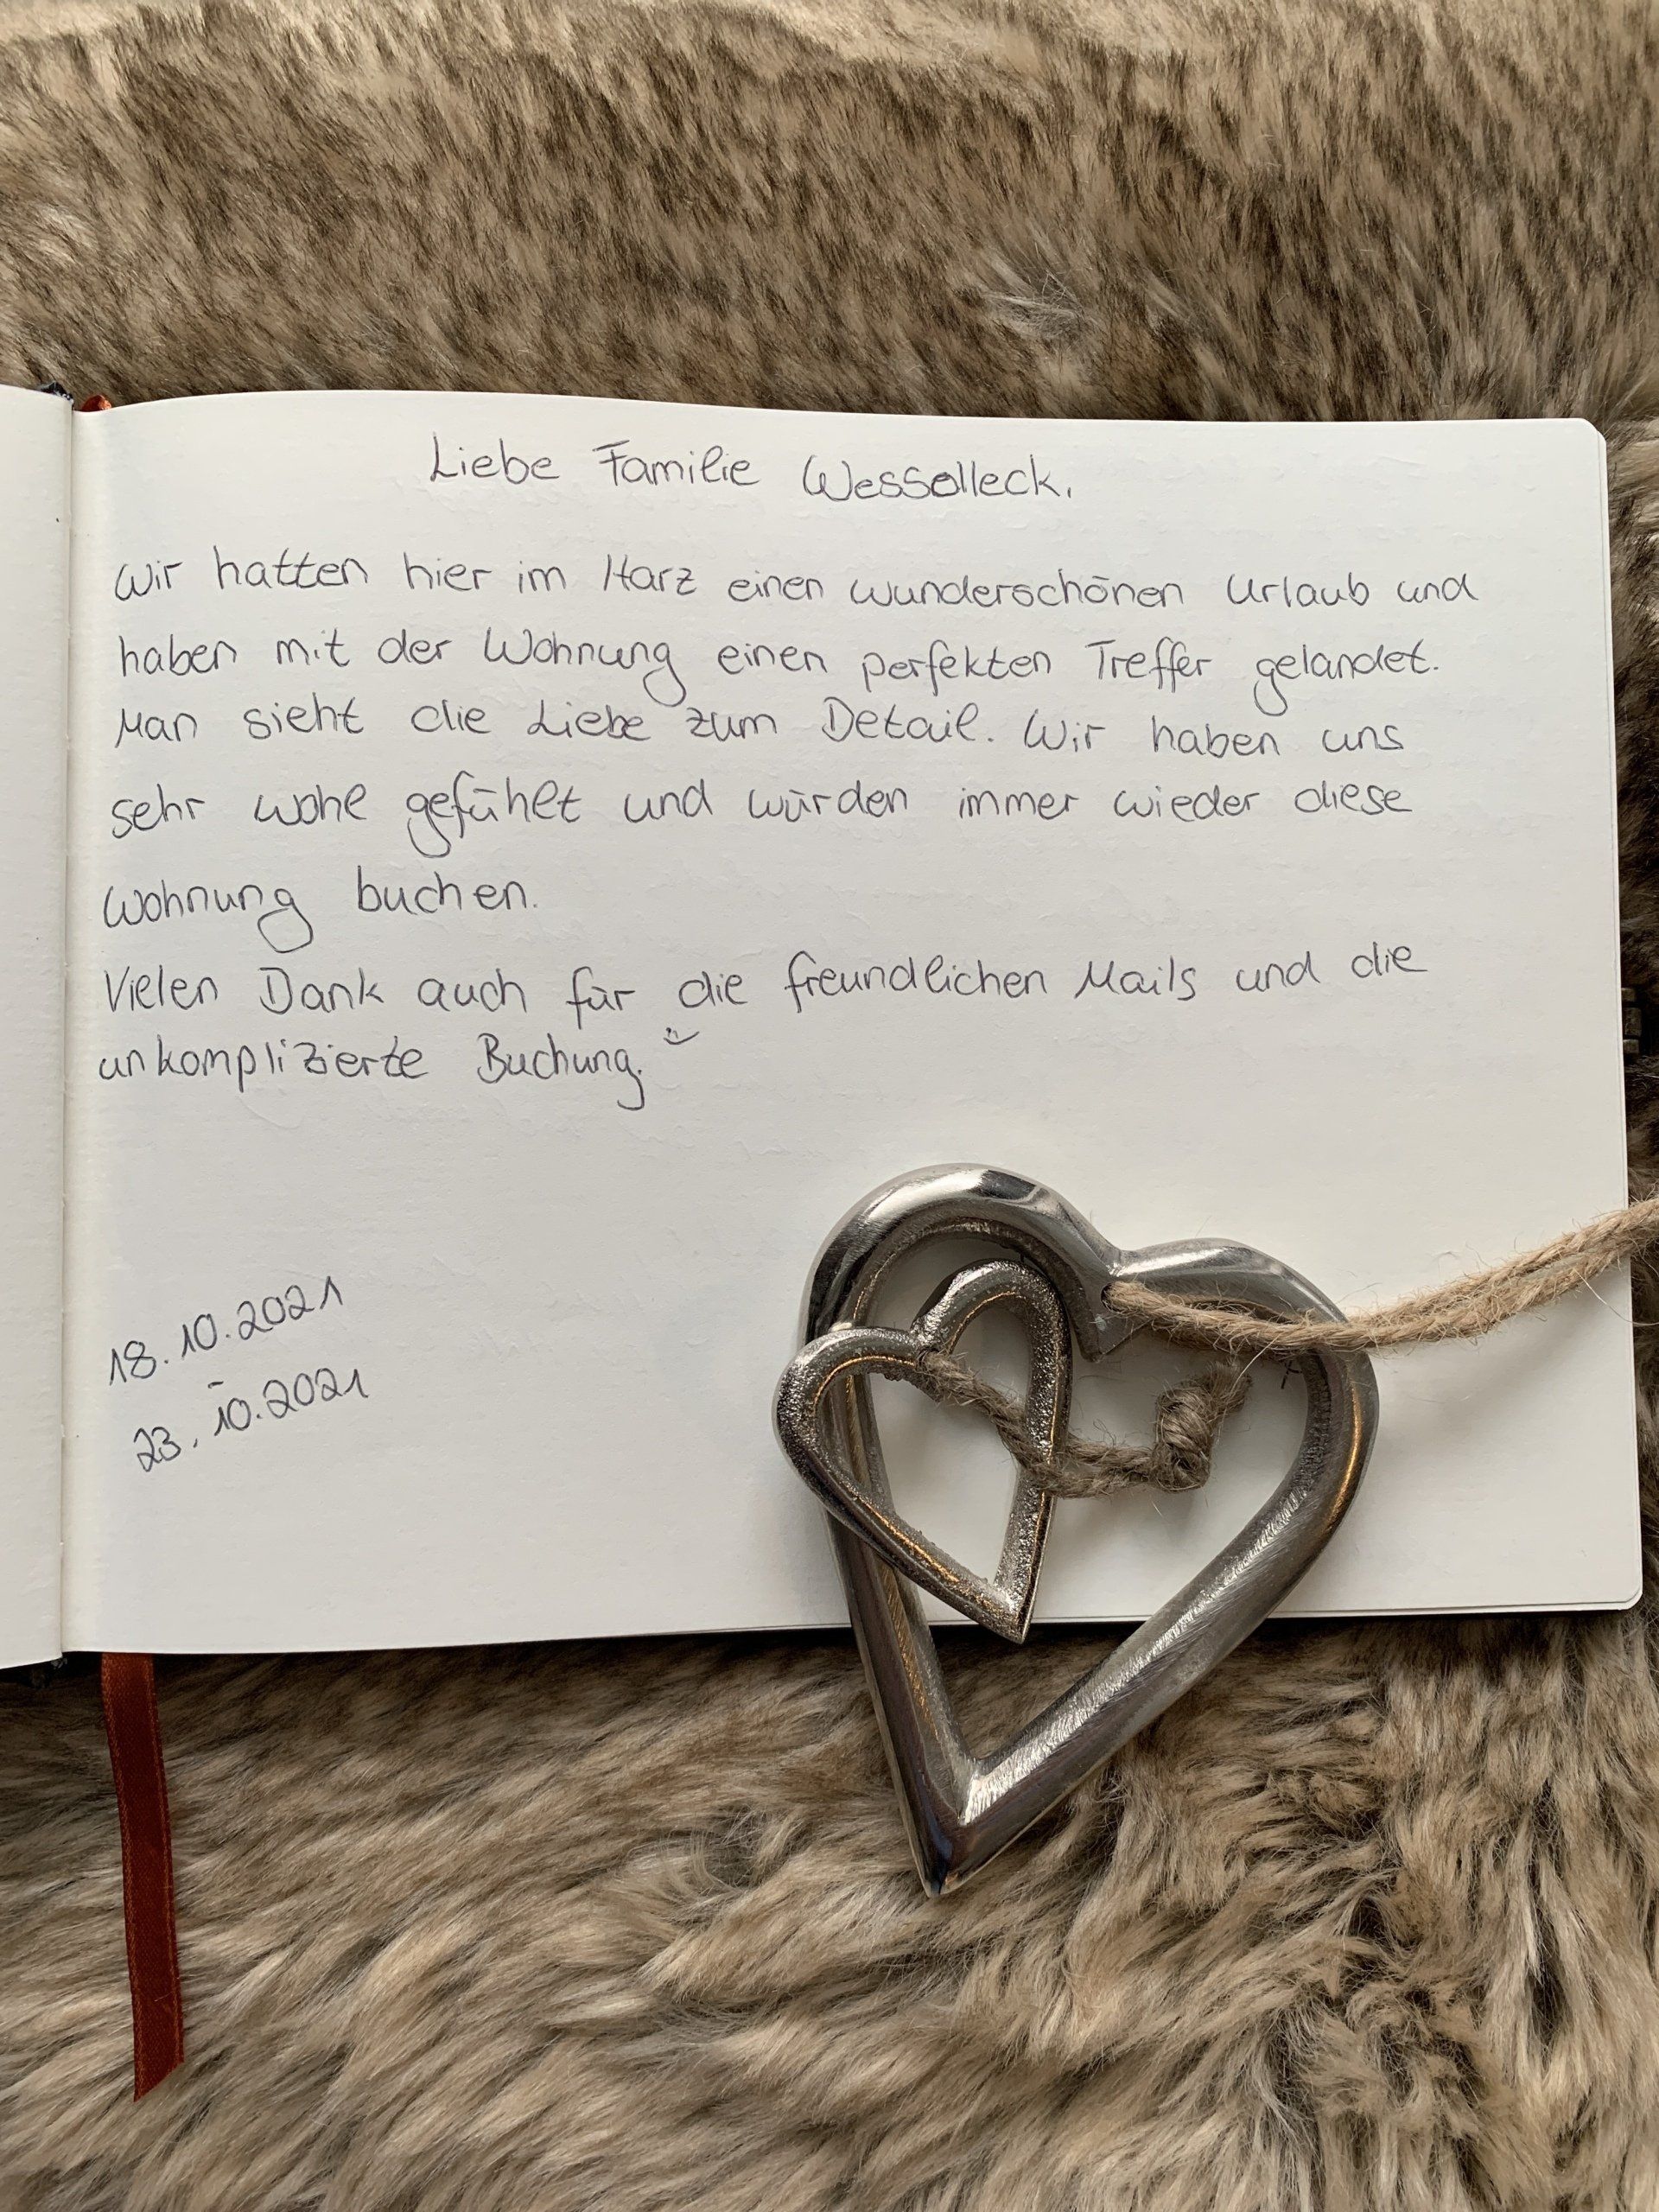 Liebe Familie Wessolleck,
Wir hatten hier im Harz einen wunderschönen Urlaub und
haben mit der Wohnung einen perfekten Treffer gelandet.
Man sieht die Liebe zum Detail. Wir haben uns
sehr wohl gefühlt und würden immer wieder diese
Wohnung buchen.
Vielen Dank auch für die freundlichen Mails und die
unkomplizierte Buchung. ü
18.10.2021
-
23.10.2021